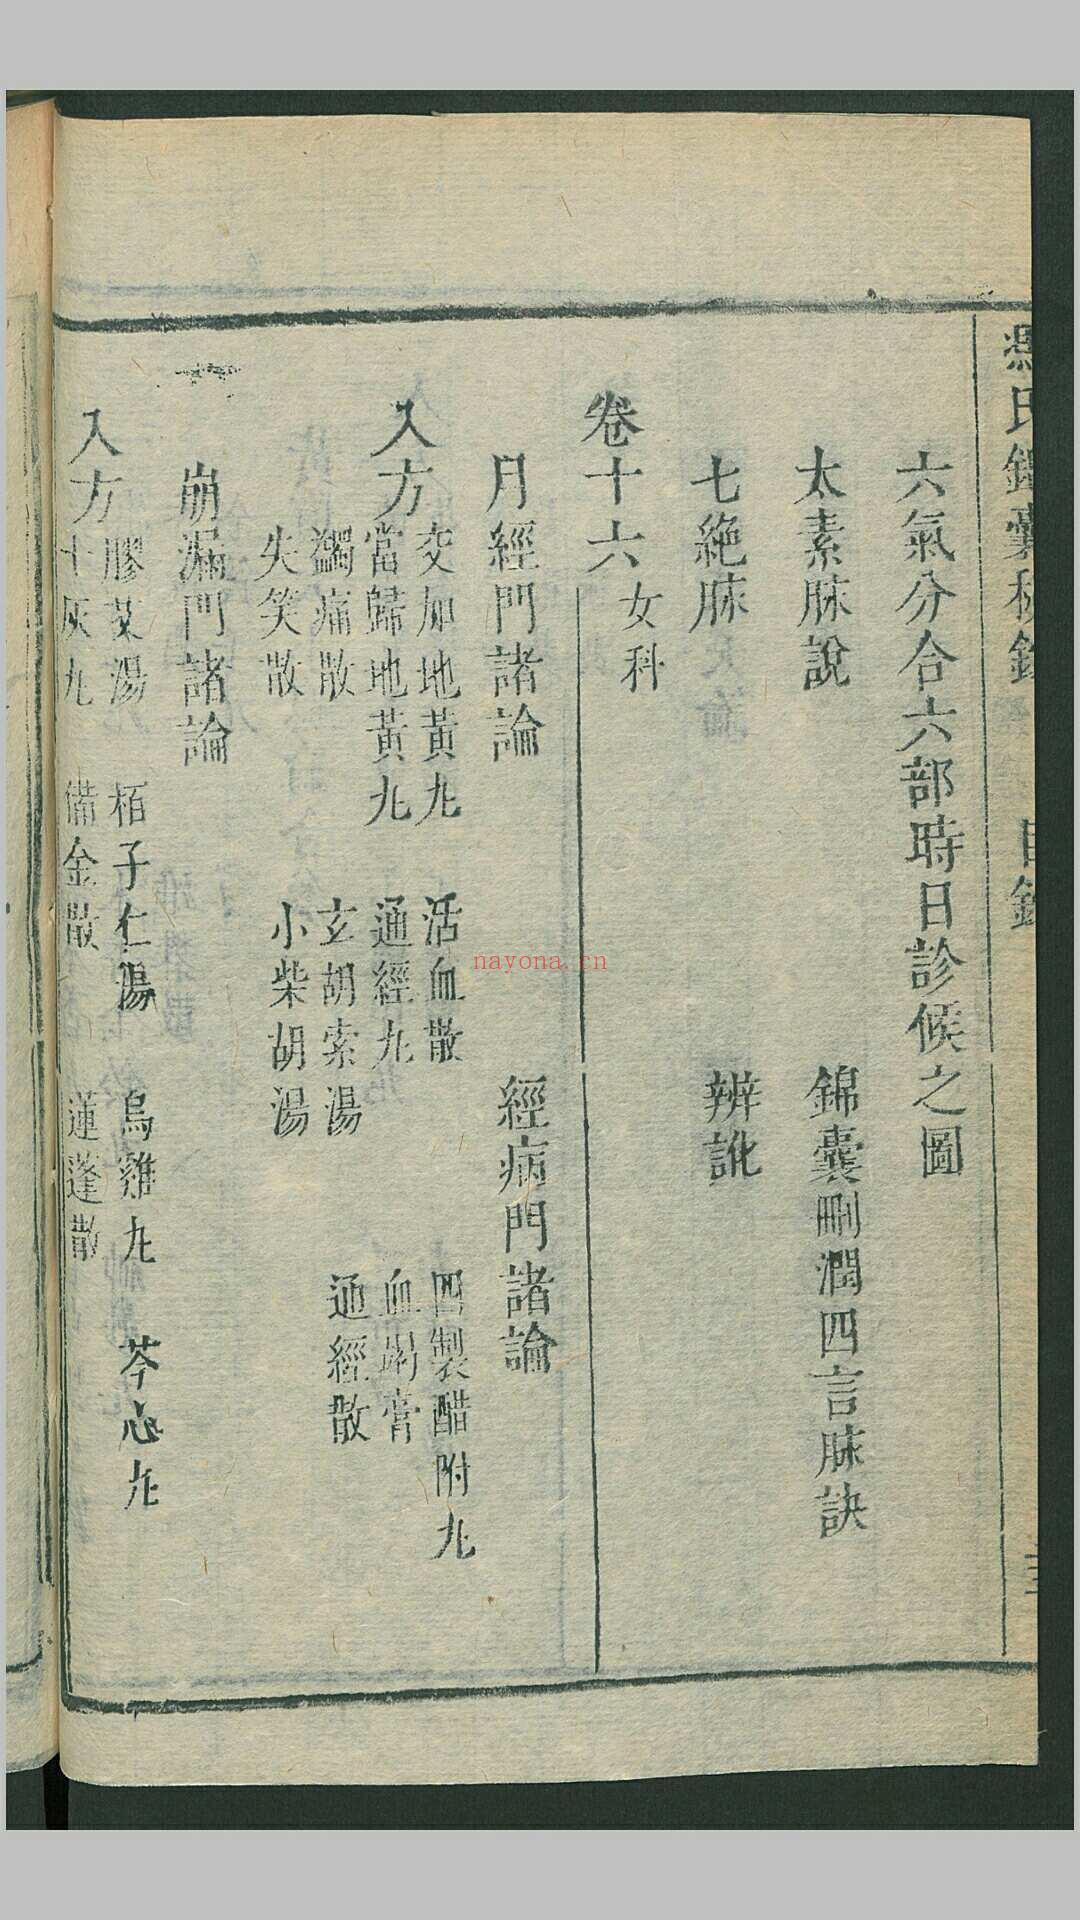 馮氏錦囊秘錄 目錄 三
六氣分合六部時日診候之圖
太素脉說 錦囊刪潤四言脉訣
七絶脉 辨訛
卷十六 女科
月經門諸論 經病門諸論
入方 交加地黃九 活血散 四製醋附九
當歸地黃九 通經九 血竭膏
蠲痛散 玄胡索湯 通經散
失笑散 小柴胡湯
崩漏門諸論
入方 膠艾湯 栢子仁湯 烏雞九 芩心九
十灰九 備金散 蓮蓬散
nayona.cn